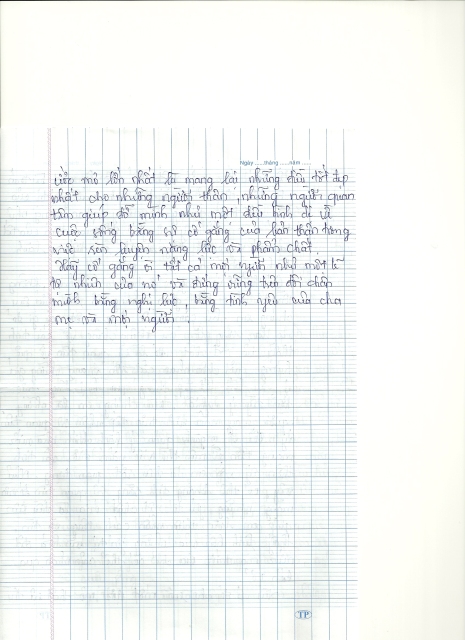 Ngày ..... tháng ..... năm .....
ước mơ lớn nhất là mang lại những điều tốt đẹp
nhất cho những người thân, những người quan
tâm giúp đỡ mình như một điều bình dị về
cuộc sống bằng sự cố gắng của bản thân trong
việc rèn luyện năng lực và phẩm chất.
Hãy cố gắng vì tất cả mọi người như một lẽ
tự nhiên của nó và đứng vững trên đôi chân
mình bằng nghị lực, bằng tình yêu của cha
mẹ và mọi người.
TP